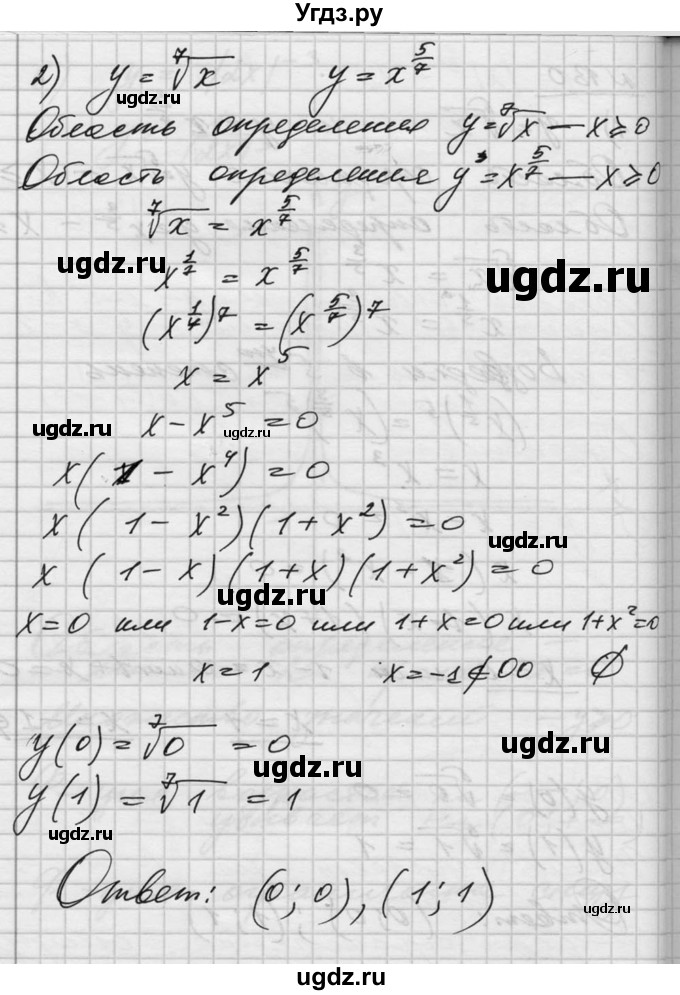 Угдз.ру
2) y = ⁷√x y = x^(5/7)
ugdz.ru
Область определения y = ⁷√x — x ≥ 0
Область определения y = x^(5/7) — x ≥ 0
⁷√x = x^(5/7)
ugdz.ru ugdz.ru
x^(1/7) = x^(5/7)
(x^(1/7))^7 = (x^(5/7))^7
x = x^5
ugdz.ru ugdz.ru
x - x^5 = 0
x(1 - x^4) = 0
x(1 - x²)(1 + x²) = 0
ugdz.ru
x(1 - x)(1 + x)(1 + x²) = 0
ugdz.ru
x = 0 или 1 - x = 0 или 1 + x = 0 или 1 + x² = 0
x = 1 x = -1 ∉ ОО ∅
y(0) = ⁷√0 = 0
ugdz.ru ugdz.ru
y(1) = ⁷√1 = 1
ugdz.ru
Ответ: (0; 0), (1; 1)
ugdz.ru
ugdz.ru